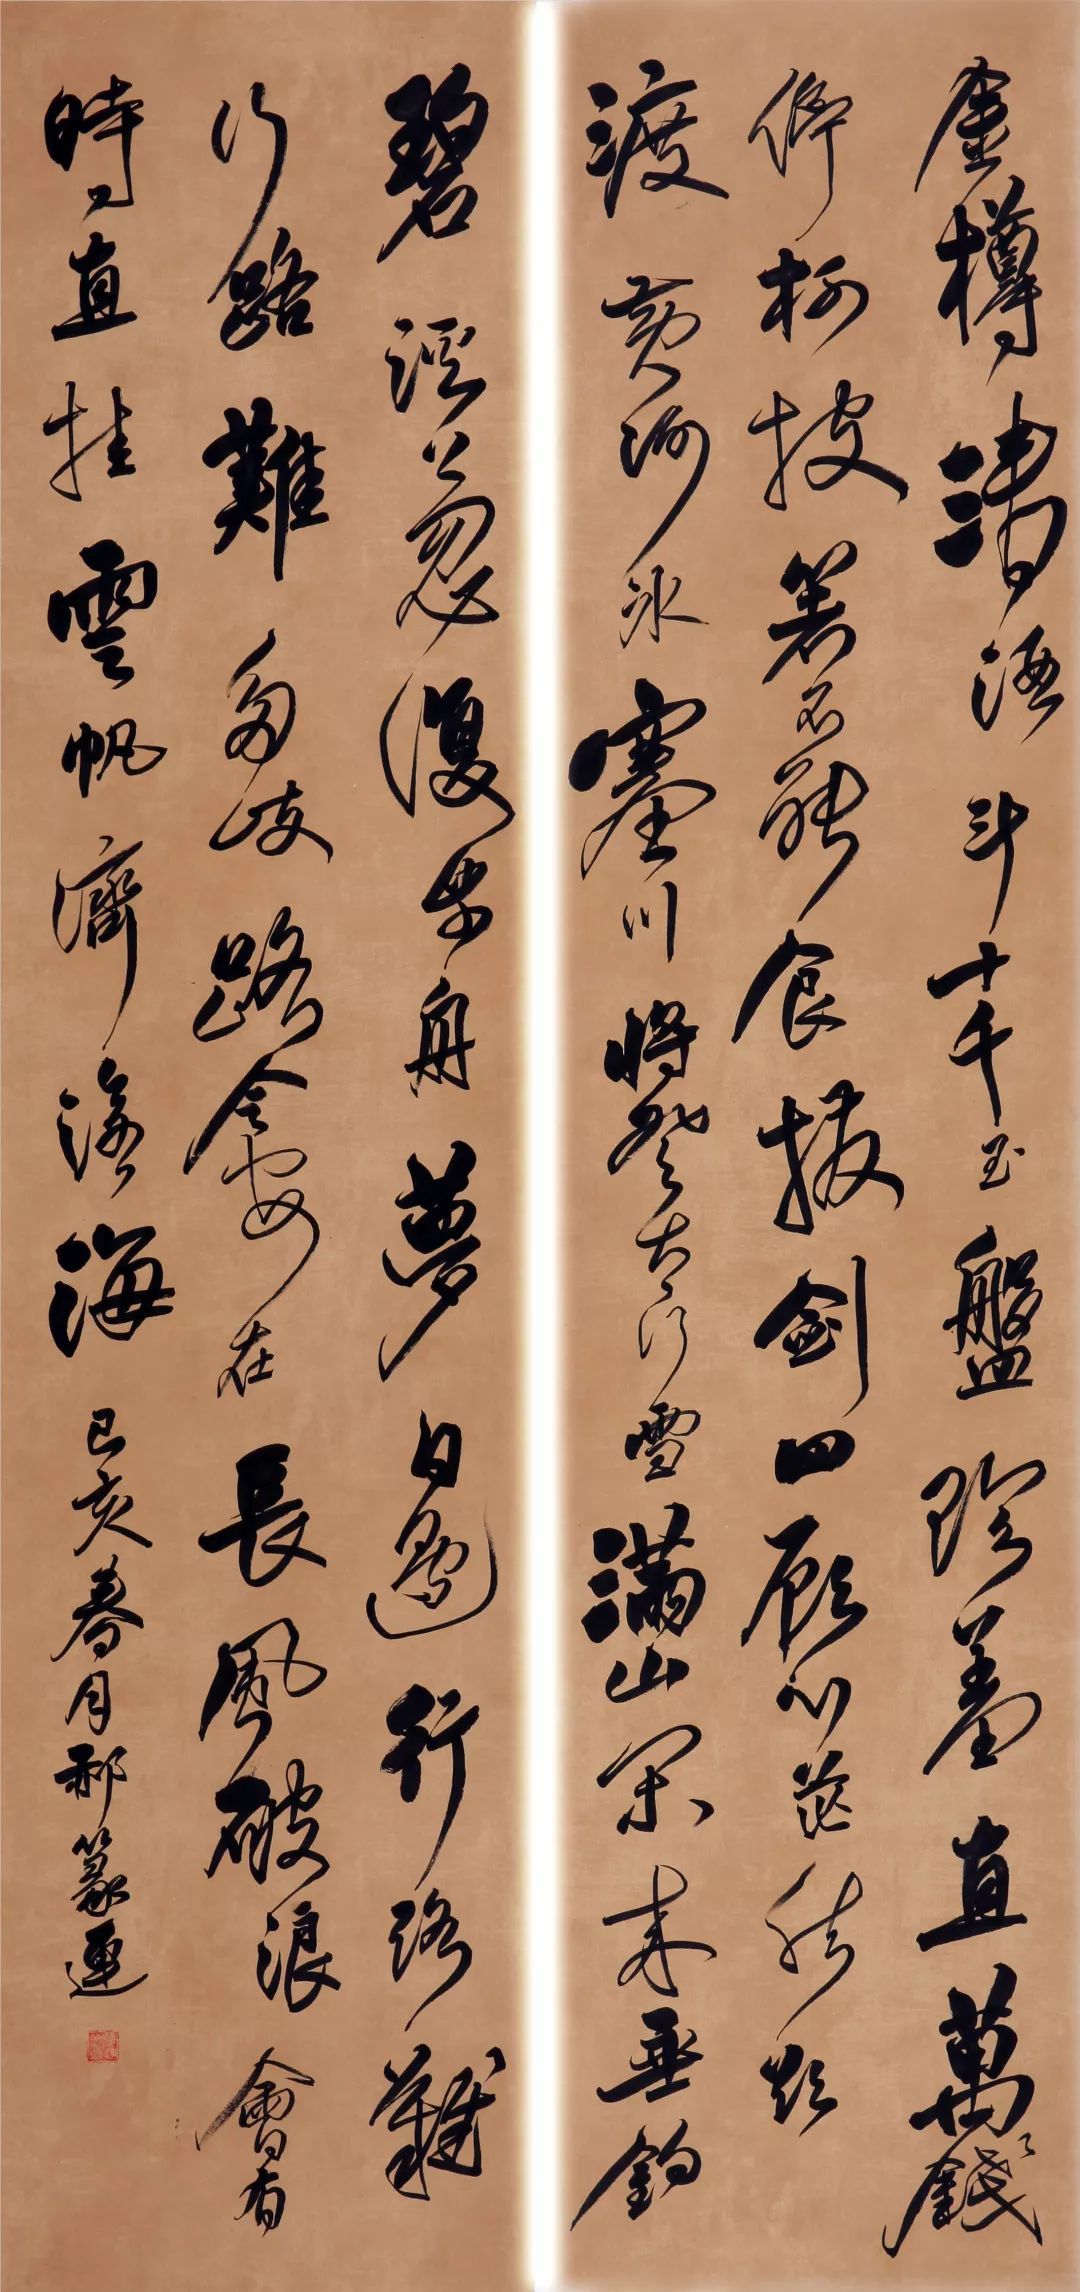 金樽清酒斗十千玉盤珍羞直萬錢
停杯投箸不能食拔劍四顧心茫然欲
渡黃河冰塞川將登太行雪滿山閑來垂釣
碧溪上忽復乘舟夢日邊行路難
行路難多岐路今安在長風破浪會有
時直挂雲帆濟滄海 己亥春月郝篆